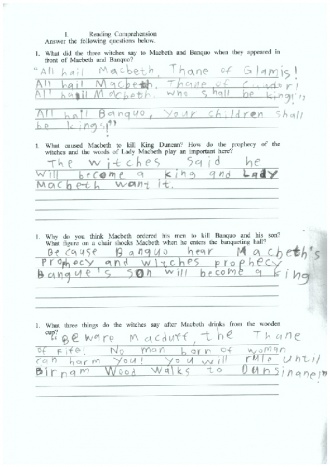 I. Reading Comprehension
Answer the following questions below.
1. What did the three witches say to Macbeth and Banquo when they appeared in
front of Macbeth and Banquo?
"All hail Macbeth, Thane of Glamis!
All hail Macbeth, Thane of
All hail Macbeth, who shall be king!"
All hail Banquo, your children shall
be kings!"
1. What caused Macbeth to kill King Duncan? How do the prophecy of the
witches and the words of Lady Macbeth play an important here?
The witches said he
will become a king and Lady
Macbeth want it.
1. Why do you think Macbeth ordered his men to kill Banquo and his son?
What figure on a chair shocks Macbeth when he enters the banqueting hall?
Because Banquo hear Macbeth's
Prophecy and witches prophecy
Banquo's son will become a king
1. What three things do the witches say after Macbeth drinks from the wooden
cup?
"Beware Macduff, the Thane
of Fife! No man born of woman
can harm you! You will rule until
Birnam Wood walks to Dunsinane!"